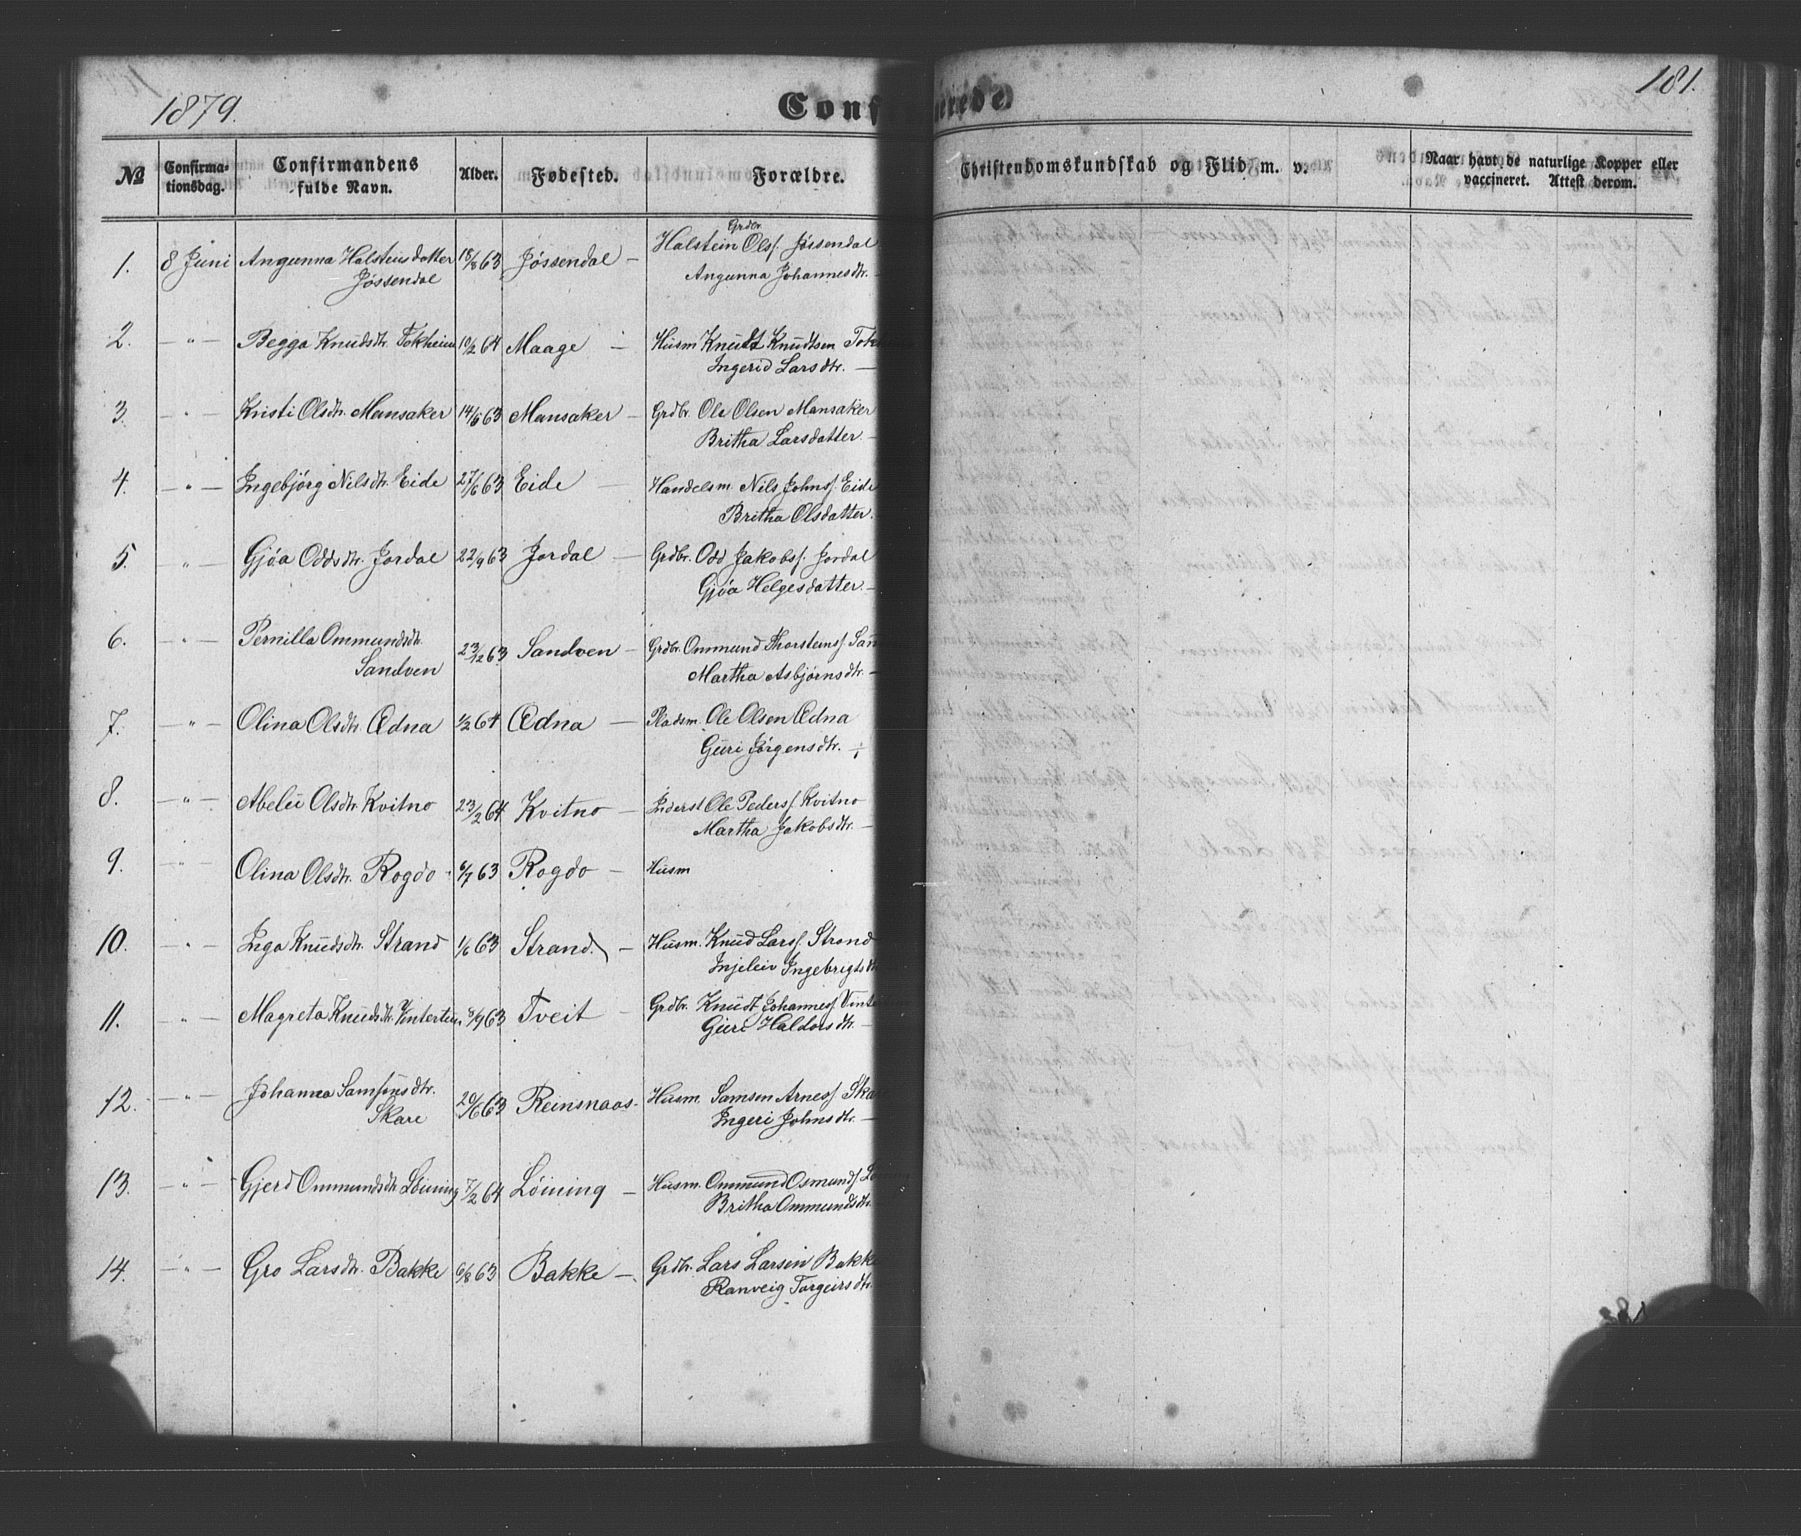 1879.
181.
Conf
erede.
№
Confirma-
tionsdag.
Confirmandens
fulde Navn.
Alder.
Fødested.
Forældre.
Christendomskundskab og Flid m. v.
Naar havt de naturlige Kopper eller
vaccineret. Attest derom.
Grdbr.
1. 8 Juni Angunna Halsteinsdatter 18/8 63 Jøssendal — Halstein Olss. Jøssendal
Jøssendal Angunna Johannesdtr. —
2. — " — Begga Knudsdtr. Tokheim 10/2 64 Maage — Husm Knudt Knudtsen Tok
Ingerid Larsdtr. —
3. — " — Kristi Olsdtr. Mansaker 14/6 63 Mansaker — Grdbr. Ole Olsen Mansaker
Britha Larsdatter —
4. — " — Ingebjörg Nilsdtr. Eide 27/6 63 Eide — Handelsm. Nils Johns. Eide
Britha Olsdatter.
5. — " — Gjøa Oddsdtr. Jordal 22/9 63 Jordal — Grdbr. Odd Jakobs. Jordal
Gjøa Helgesdatter —
6. — " — Pernilla Ommundsdtr. 23/12 63 Sandven — Grdbr. Ommund Thorsteins. San
Sandven Martha Asbjørnsdtr. —
7. — " — Olina Olsdtr. Ædna 1/2 64 Ædna — Pladsm. Ole Olsen Ædna
Guri Jørgensdtr. —
8. — " — Abelei Olsdtr. Kvitno 23/2 64 Kvitno — Inderst Ole Peders. Kvitno
Martha Jakobsdtr. —
9. — " — Olina Olsdtr. Rogdo 6/7 63 Rogdo — Husm
10. — " — Inga Knudsdtr. Strand 1/6 63 Strand. — Husm. Knud Larss. Strand
Injeleiv Ingebrigtsdtr
11. — " — Magreta Knudsdtr. Vintertun 8/9 63 Tveit — Grdbr. Knudt Johanness. Vinte
Guri Haldorsdtr. —
12. — " — Johanna Samsonsdtr. 20/6 63 Reinsnaas — Husm. Samson Arness. Ska
Skare Ingeri Johnsdtr. —
13. — " — Gjerd Ommundsdtr. Löining 7/2 64 Löining — Husm. Ommund Osmunds. Lö
Britha Ommundsdtr.
14. — " — Gro Larsdtr. Bakke 6/8 63 Bakke — Grdbr. Lars Larsen Bakke
Ranveig Torgeirsdtr.